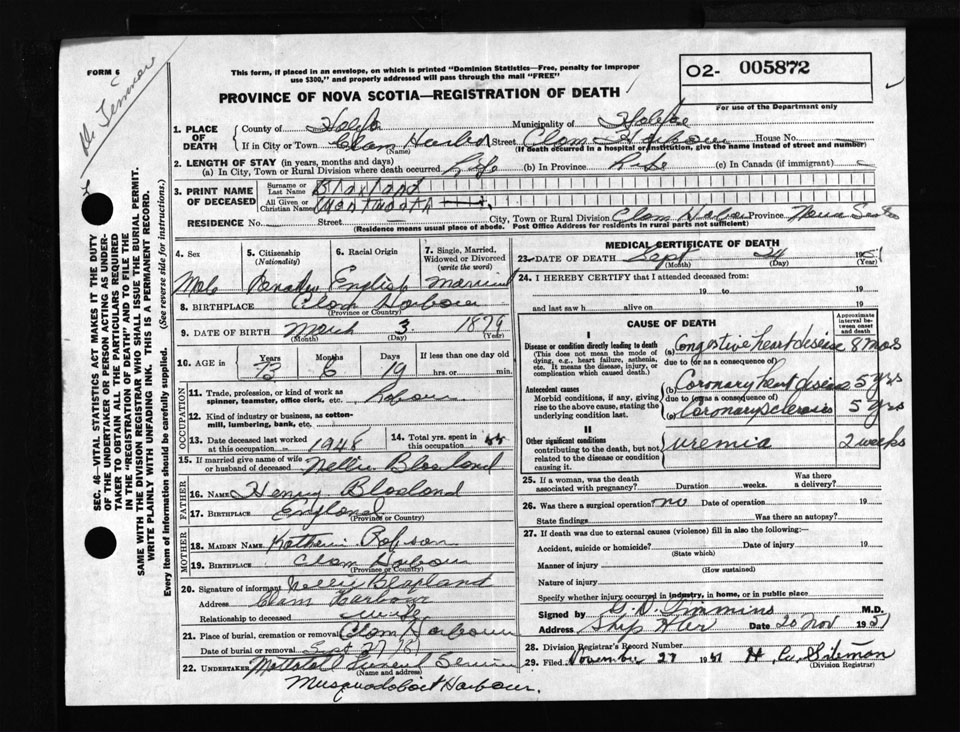 FORM 6
This form, if placed in an envelope, on which is printed "Dominion Statistics—Free, penalty for improper
use $300," and properly addressed will pass through the mail "FREE"
O2- 005872
For use of the Department only
PROVINCE OF NOVA SCOTIA—REGISTRATION OF DEATH
1. PLACE OF DEATH County of Municipality of
If in City or Town Clam Harbor (Name) Street Clam Harbour House No.
(If death occurred in a hospital or institution, give the name instead of street and number)
2. LENGTH OF STAY (in years, months and days)
(a) In City, Town or Rural Division where death occurred Life (b) In Province Life (c) In Canada (if immigrant) —
3. PRINT NAME OF DECEASED Surname or Last Name
All Given or Christian Names
RESIDENCE No. Street City, Town or Rural Division Clam Province Nova Scotia
(Residence means usual place of abode. Post Office Address for residents in rural parts not sufficient)
4. Sex 5. Citizenship (Nationality) 6. Racial Origin 7. Single, Married, Widowed or Divorced (write the word)
Male English Married
8. BIRTHPLACE Clam Harbour
(Province or Country)
9. DATE OF BIRTH March 3 1879
(Month) (Day) (Year)
10. AGE in Years Months Days If less than one day old
6 19 hrs. or min.
OCCUPATION
11. Trade, profession, or kind of work as spinner, teamster, office clerk, etc.
12. Kind of industry or business, as cotton-mill, lumbering, bank, etc.
13. Date deceased last worked at this occupation 1948 14. Total yrs. spent in this occupation
15. If married give name of wife or husband of deceased Nellie
FATHER
16. NAME Henry
17. BIRTHPLACE England
(Province or Country)
MOTHER
18. MAIDEN NAME
19. BIRTHPLACE Clam Harbour
(Province or Country)
20. Signature of informant Nellie
Address Clam Harbour
Relationship to deceased
21. Place of burial, cremation or removal Clam Harbour
Date of burial or removal Sept 27/51
22. UNDERTAKER Funeral Service
(Name and address)
Musquodoboit Harbour.
MEDICAL CERTIFICATE OF DEATH
23. DATE OF DEATH Sept 24 1951
(Month) (Day) (Year)
24. I HEREBY CERTIFY that I attended deceased from
19 to 19
and last saw h alive on 19
CAUSE OF DEATH
Approximate interval between onset and death
I
Disease or condition directly leading to death (a) Congestive heart disease 8 mos
(This does not mean the mode of dying, e.g., heart failure, asthenia, etc. It means the disease, injury, or complication which caused death.)
due to (or as a consequence of)
Antecedent causes (b) Coronary heart disease 5 yrs
Morbid conditions, if any, giving rise to the above cause, stating the underlying condition last.
due to (or as a consequence of)
(c) Coronary sclerosis 5 yrs
II
Other significant conditions contributing to the death, but not related to the disease or condition causing it.
uremia 2 weeks
25. If a woman, was the death associated with pregnancy? Duration weeks. Was there a delivery?
26. Was there a surgical operation? no Date of operation 19
State findings Was there an autopsy?
27. If death was due to external causes (violence) fill in also the following:—
Accident, suicide or homicide? Date of injury 19
(State which)
Manner of injury
(How sustained)
Nature of injury
Specify whether injury occurred in industry, in home, or in public place
Signed by M.D.
Address Ship Hbr Date 20 Nov 1951
28. Division Registrar's Record Number
29. Filed November 27 1951
(Division Registrar)
SEC. 46—VITAL STATISTICS ACT MAKES IT THE DUTY
OF THE UNDERTAKER OR PERSON ACTING AS UNDER-
TAKER TO OBTAIN ALL THE PARTICULARS REQUIRED
IN THE "REGISTRATION OF DEATH" AND TO FILE THE
SAME WITH THE DIVISION REGISTRAR WHO SHALL ISSUE THE BURIAL PERMIT.
WRITE PLAINLY WITH UNFADING INK. THIS IS A PERMANENT RECORD.
Every item of information should be carefully supplied. (See reverse side for instructions.)